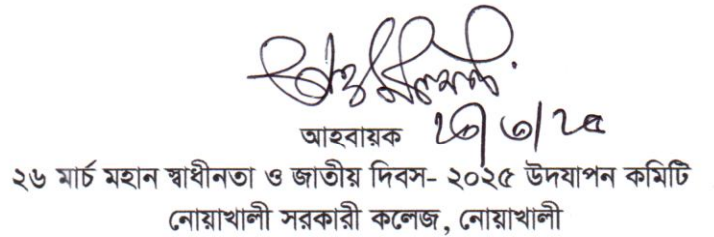 আহবায়ক
২৬ মার্চ মহান স্বাধীনতা ও জাতীয় দিবস- ২০২৫ উদযাপন কমিটি
নোয়াখালী সরকারী কলেজ, নোয়াখালী